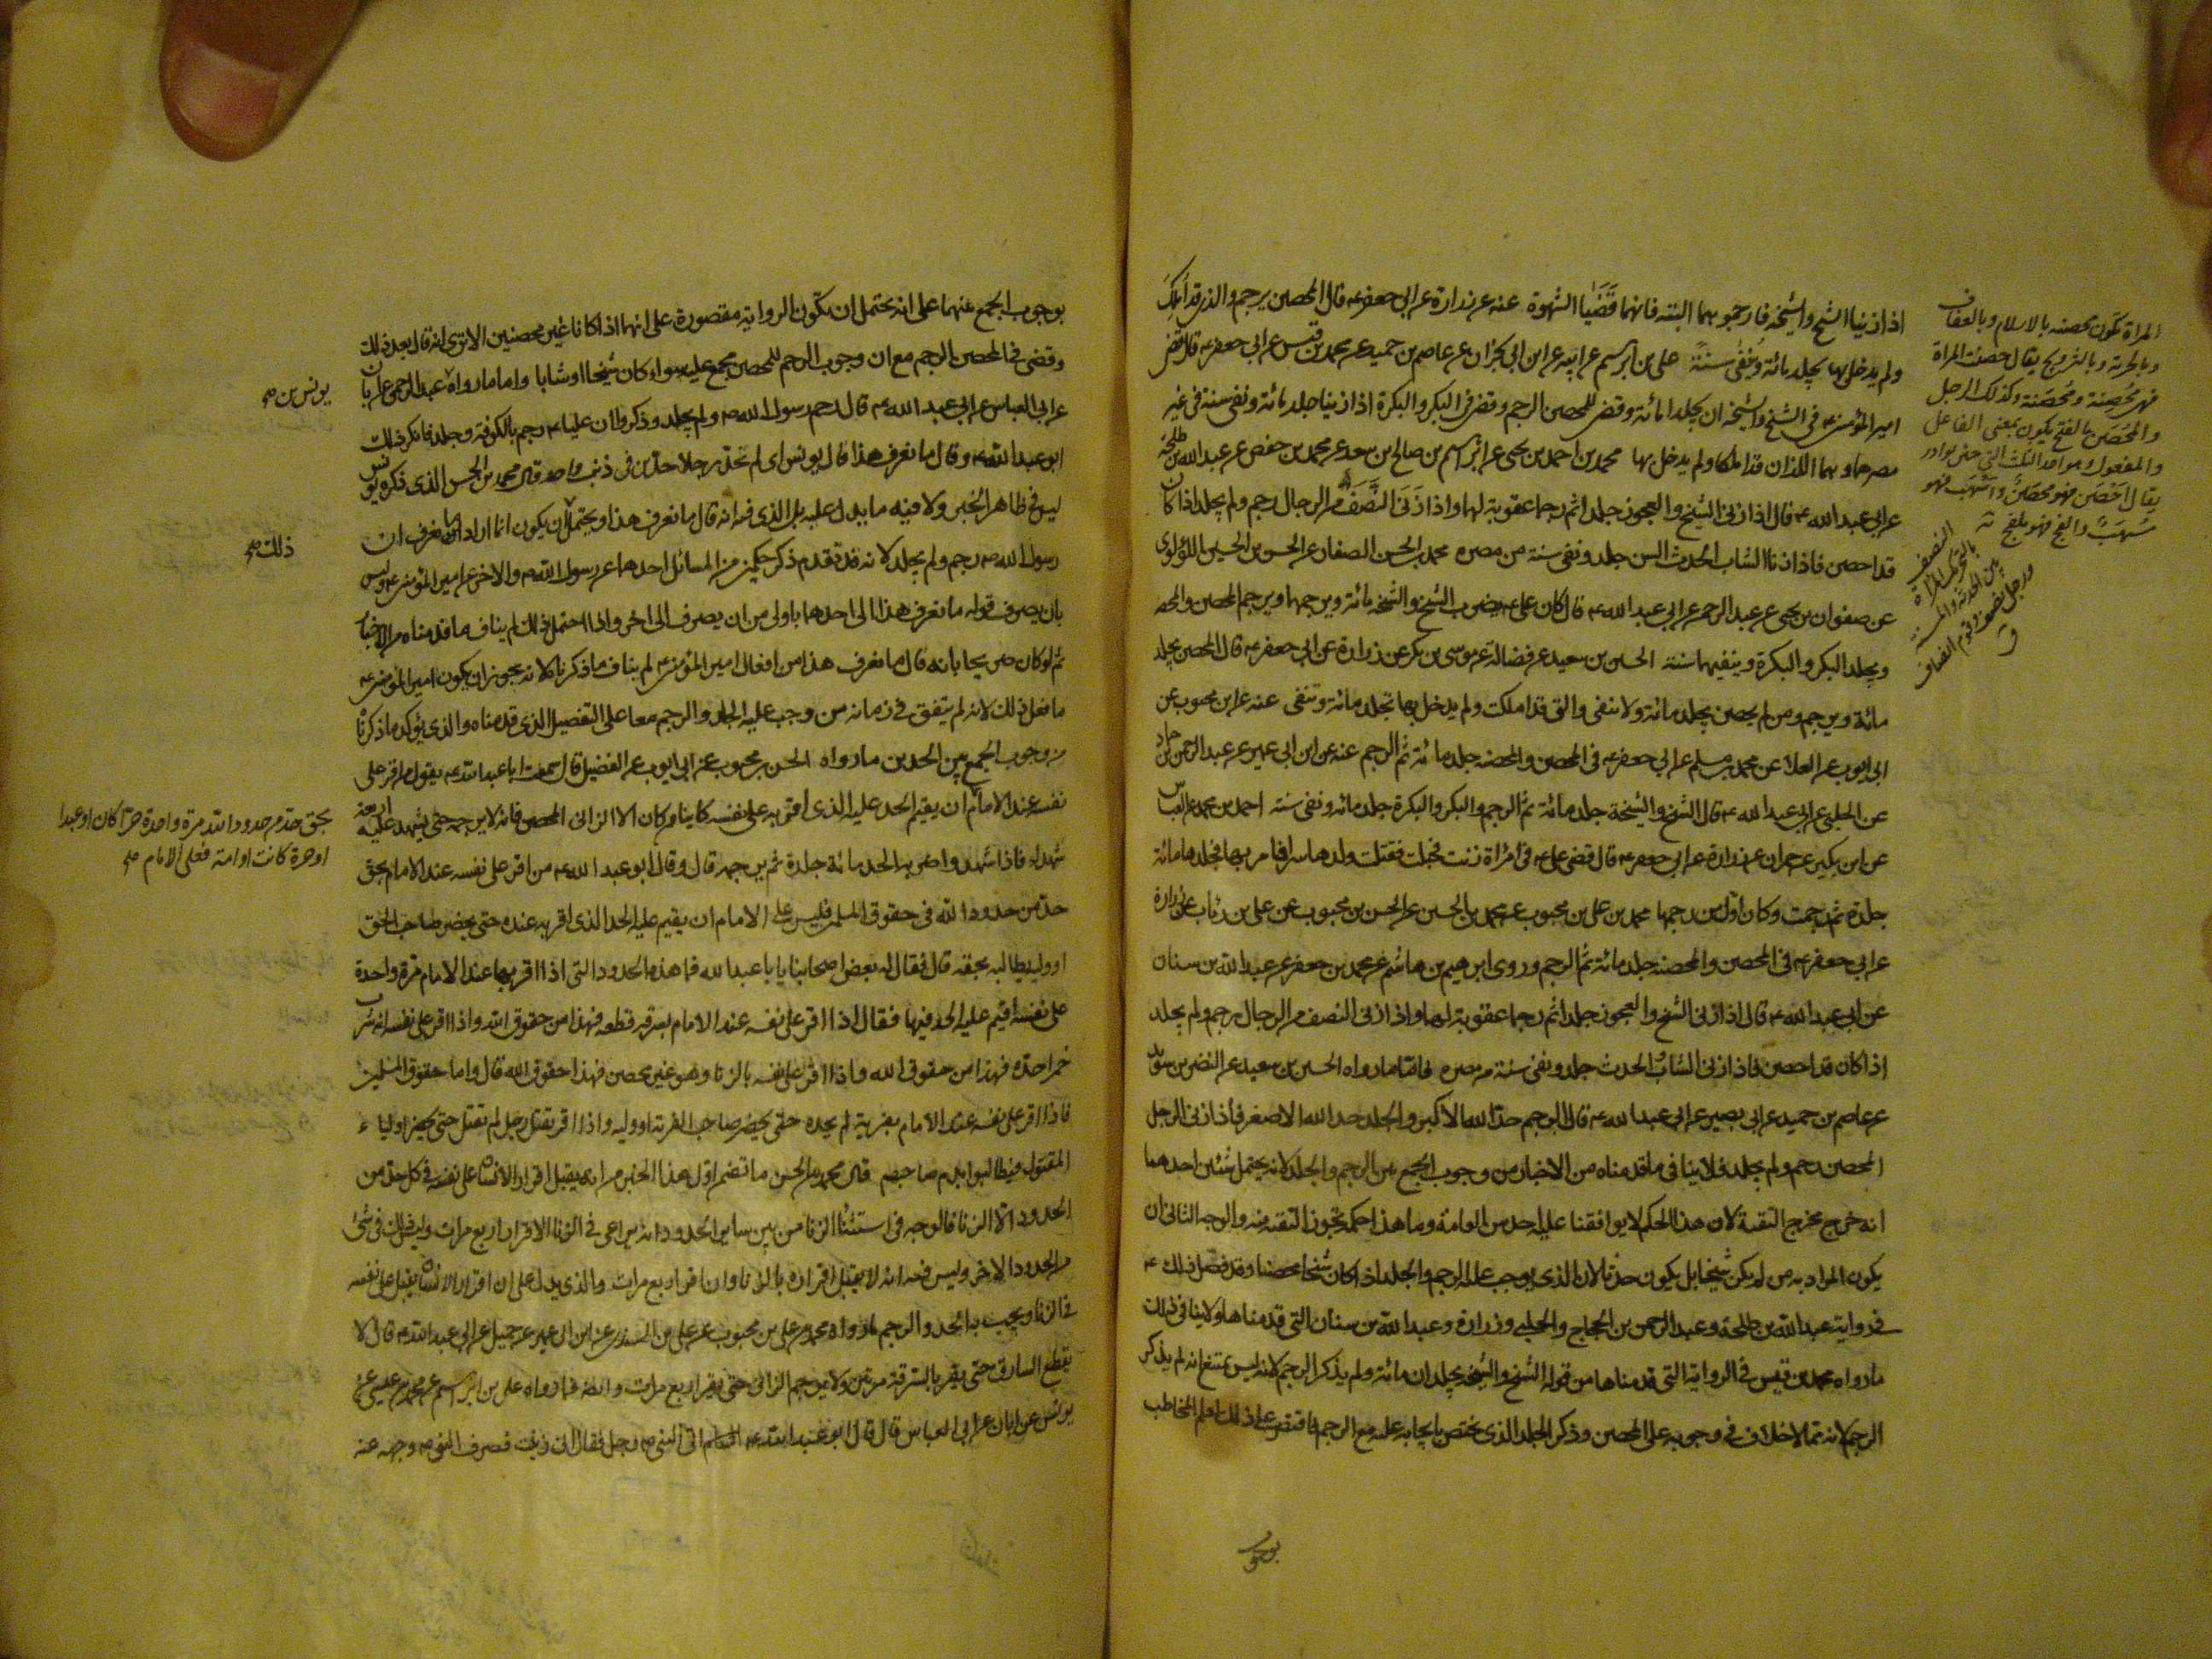 اذا زنيا الشيخ والشيخة فارجموهما البتة فانهما قضيا الشهوة عنه عن زرارة عن ابي جعفر ع قال المحصن يرجم والذي قد املك
ولم يدخل بها يجلد مائة وينفى سنة علي بن ابرهيم عن ابيه عن ابن ابي نجران عن عاصم بن حميد عن محمد بن قيس عن ابي جعفر ع قال قضى
امير المؤمنين ع في الشيخ والشيخة ان يجلدا مائة وقضى للمحصن الرجم وقضى في البكر والبكرة اذا زنيا جلد مائة ونفي سنة في غير
مصرهما وهما اللذان قد املكا ولم يدخل بها محمد بن احمد بن يحيى عن ابرهيم بن صالح بن سعد عن محمد بن حفص عن عبد الله بن طلحة
عن ابي عبد الله ع قال اذا زنى الشيخ والعجوز جلدا ثم رجما عقوبة لهما واذا زنى النصف من الرجال رجم ولم يجلد اذا كان
قد احصن فاذا زنا الشاب الحدث السن جلد ونفي سنة من مصره محمد بن الحسن الصفار عن الحسن بن الحسين اللؤلوي
عن صفوان بن يحيى عن عبد الرحمن عن ابي عبد الله ع قال كان علي ع يضرب الشيخ والشيخة مائة ويرجمهما ويرجم المحصن والمحصنة
ويجلد البكر والبكرة وينفيهما سنة الحسين بن سعيد عن فضالة عن موسى بن بكر عن زرارة عن ابي جعفر ع قال المحصن يجلد
مائة ويرجم ومن لم يحصن يجلد مائة ولا ينفى والتي قد املكت ولم يدخل بها تجلد مائة وتنفى عنه عن ابن محبوب عن
ابي ايوب عن العلا عن محمد بن مسلم عن ابي جعفر ع في المحصن والمحصنة جلد مائة ثم الرجم عنه عن ابن ابي عمير عن عبد الرحمن بن حماد
عن الحلبي عن ابي عبد الله ع قال الشيخ والشيخة جلد مائة ثم الرجم والبكر والبكرة جلد مائة ونفي سنة احمد بن محمد عن العباس
عن ابن بكير عن حمران عن زرارة عن ابي جعفر ع قال قضى علي ع في امراة زنت فحبلت فقتلت ولدها سرا فامر بها فجلدها مائة
جلدة ثم رجمت وكان اول من رجمها محمد بن علي بن محبوب عن محمد بن الحسين عن الحسن بن محبوب عن علي بن رئاب عن زرارة
عن ابي جعفر ع في المحصن والمحصنة جلد مائة ثم الرجم وروى ابرهيم بن هاشم عن محمد بن جعفر عن عبد الله بن سنان
عن ابي عبد الله ع قال اذا زنى الشيخ والعجوز جلدا ثم رجما عقوبة لهما واذا زنى النصف من الرجال رجم ولم يجلد
اذا كان قد احصن فاذا زنى الشاب الحدث جلد ونفي سنة من مصره فاما ما رواه الحسين بن سعيد عن النضر بن سويد
عن عاصم بن حميد عن ابي بصير عن ابي عبد الله ع قال الرجم حد الله الاكبر والجلد حد الله الاصغر فاذا زنى الرجل
المحصن رجم ولم يجلد فلا ينافي ما قدمناه من الاخبار من وجوب الجمع بين الرجم والجلد لانه يحتمل شيئين احدهما
انه خرج مخرج التقية لان هذا الحكم لا يوافقنا عليه احد من العامة وما هذا حكمه يجوز التقية فيه والوجه الثاني ان
يكون المراد به من لم يكن شيخا بل يكون حدثا لان الذي يوجب عليه الرجم والجلد اذا كان شيخا محصنا وقد فصل ذلك ع
في رواية عبد الله بن طلحة وعبد الرحمن بن الحجاج والحلبي وزرارة وعبد الله بن سنان التي قدمناها ولا ينافي ذلك
ما رواه محمد بن قيس في الرواية التي قدمناها من قوله الشيخ والشيخة يجلدان مائة ولم يذكر الرجم لانه ليس يمتنع انه لم يذكر
الرجم لانه مما لا خلاف في وجوبه على المحصن وذكر الجلد الذي يختص بايجابه عليه مع الرجم فاقتصر على ذلك لعلم المخاطب
المراة تكون محصنة بالاسلام وبالعفاف
وبالحرية وبالتزويج يقال حصنت المراة
فهي محصنة ومحصنة وكذلك الرجل
والمحصن بالفتح يكون بمعنى الفاعل
والمفعول وهو احد الثلث التي جئن نوادر
يقال احصن فهو محصن واسهب فهو
مسهب والفج فهو ملفج
بوجوب
بوجوب الجمع عنهما على انه يحتمل ان تكون الرواية مقصورة على انهما اذا كانا غير محصنين الا ترى انه قال بعد ذلك
وقضى في المحصن الرجم مع ان وجوب الرجم للمحصن مجمع عليه سواء كان شيخا او شابا واما ما رواه عبد الرحمن عن ابان
عن ابي العباس عن ابي عبد الله ع قال رجم رسول الله ص ولم يجلد وذكروا ان عليا ع رجم بالكوفة وجلد فانكر ذلك
ابو عبد الله ع وقال ما نعرف هذا قال يونس اي لم نحد رجلا حدين في ذنب واحد قال محمد بن الحسن الذي ذكره يونس
ليس في ظاهر الخبر ولا فيه ما يدل عليه بل الذي فيه انه قال ما نعرف هذا ويحتمل ان يكون انما اراد ما نعرف ان
رسول الله ص رجم ولم يجلد لانه قد تقدم ذكر حكمين من المسائل احدهما عن رسول الله ص والاخر عن امير المؤمنين ع وليس
بان يصرف قوله ما نعرف هذا الى احدهما باولى من ان يصرف الى الاخر واذا احتمل ذلك لم يناف ما قدمناه من الاخبار
ثم لو كان صريحا بانه قال ما نعرف هذا من افعال امير المؤمنين ع لم يناف ما ذكرناه لانه يجوز ان يكون امير المؤمنين ع
ما فعل ذلك لانه لم يتفق في زمانه من وجب عليه الجلد والرجم معا على التفصيل الذي قدمناه والذي يؤكد ما ذكرناه
من وجوب الجمع بين الحدين ما رواه الحسن بن محبوب عن ابي ايوب عن الفضيل قال سمعت ابا عبد الله ع يقول من اقر على
نفسه عند الامام ان يقيم الحد عليه الذي اقر به على نفسه كاينا من كان الا الزاني المحصن فانه لا يرجمه حتى يشهد عليه اربعة
شهداء فاذا شهدوا ضربه الحد مائة جلدة ثم يرجمه قال وقال ابو عبد الله ع من اقر على نفسه عند الامام بحق
حد من حدود الله في حقوق المسلمين فليس على الامام ان يقيم عليه الحد الذي اقر به عنده حتى يحضر صاحب الحق
او وليه يطالبه بحقه قال فقال له بعض اصحابنا يا با عبد الله فما هذه الحدود التي اذا اقر بها عند الامام مرة واحدة
على نفسه اقيم عليه الحد فيها فقال اذا اقر على نفسه عند الامام بسرقة قطعه فهذا من حقوق الله واذا اقر على نفسه انه شرب
خمرا حده فهذا من حقوق الله واذا اقر على نفسه بالزنا وهو غير محصن فهذا حقوق الله قال واما حقوق المسلمين
فاذا اقر على نفسه عند الامام بفرية لم يحده حتى يحضر صاحب الفرية او وليه واذا اقر بقتل رجل لم يقتل حتى يحضر اولياء
المقتول فيطالبوا بدم صاحبهم قال محمد بن الحسن ما تضمن اول هذا الخبر من انه يقبل اقرار الانسان على نفسه في كل حد من
الحدود الا الزنا فالوجه في استثناء الزنا من بين ساير الحدود انه يراعى في الزنا الاقرار اربع مرات وليس ذلك في شئ
من الحدود الاخر وليس فيه انه لا يقبل اقراره بالزنا وان اقر اربع مرات والذي يدل على ان اقرار الانسان يقبل على نفسه
في الزنا ويجب به الحد والرجم ما رواه محمد بن علي بن محبوب عن علي بن السندي عن ابن ابي عمير عن جميل عن ابي عبد الله ع قال لا
يقطع السارق حتى يقر بالسرقة مرتين ولا يرجم الزاني حتى يقر اربع مرات وايضا فما رواه علي بن ابرهيم عن محمد بن عيسى عن
يونس عن ابان عن ابي العباس قال قال ابو عبد الله ع اتى النبي ص رجل فقال اني زنيت فصرف النبي ص وجهه عنه
يونس بن
ذلك
بحق حد من حدود الله مرة واحدة حرا كان او عبدا
او حرة كانت او امة فعلى الامام